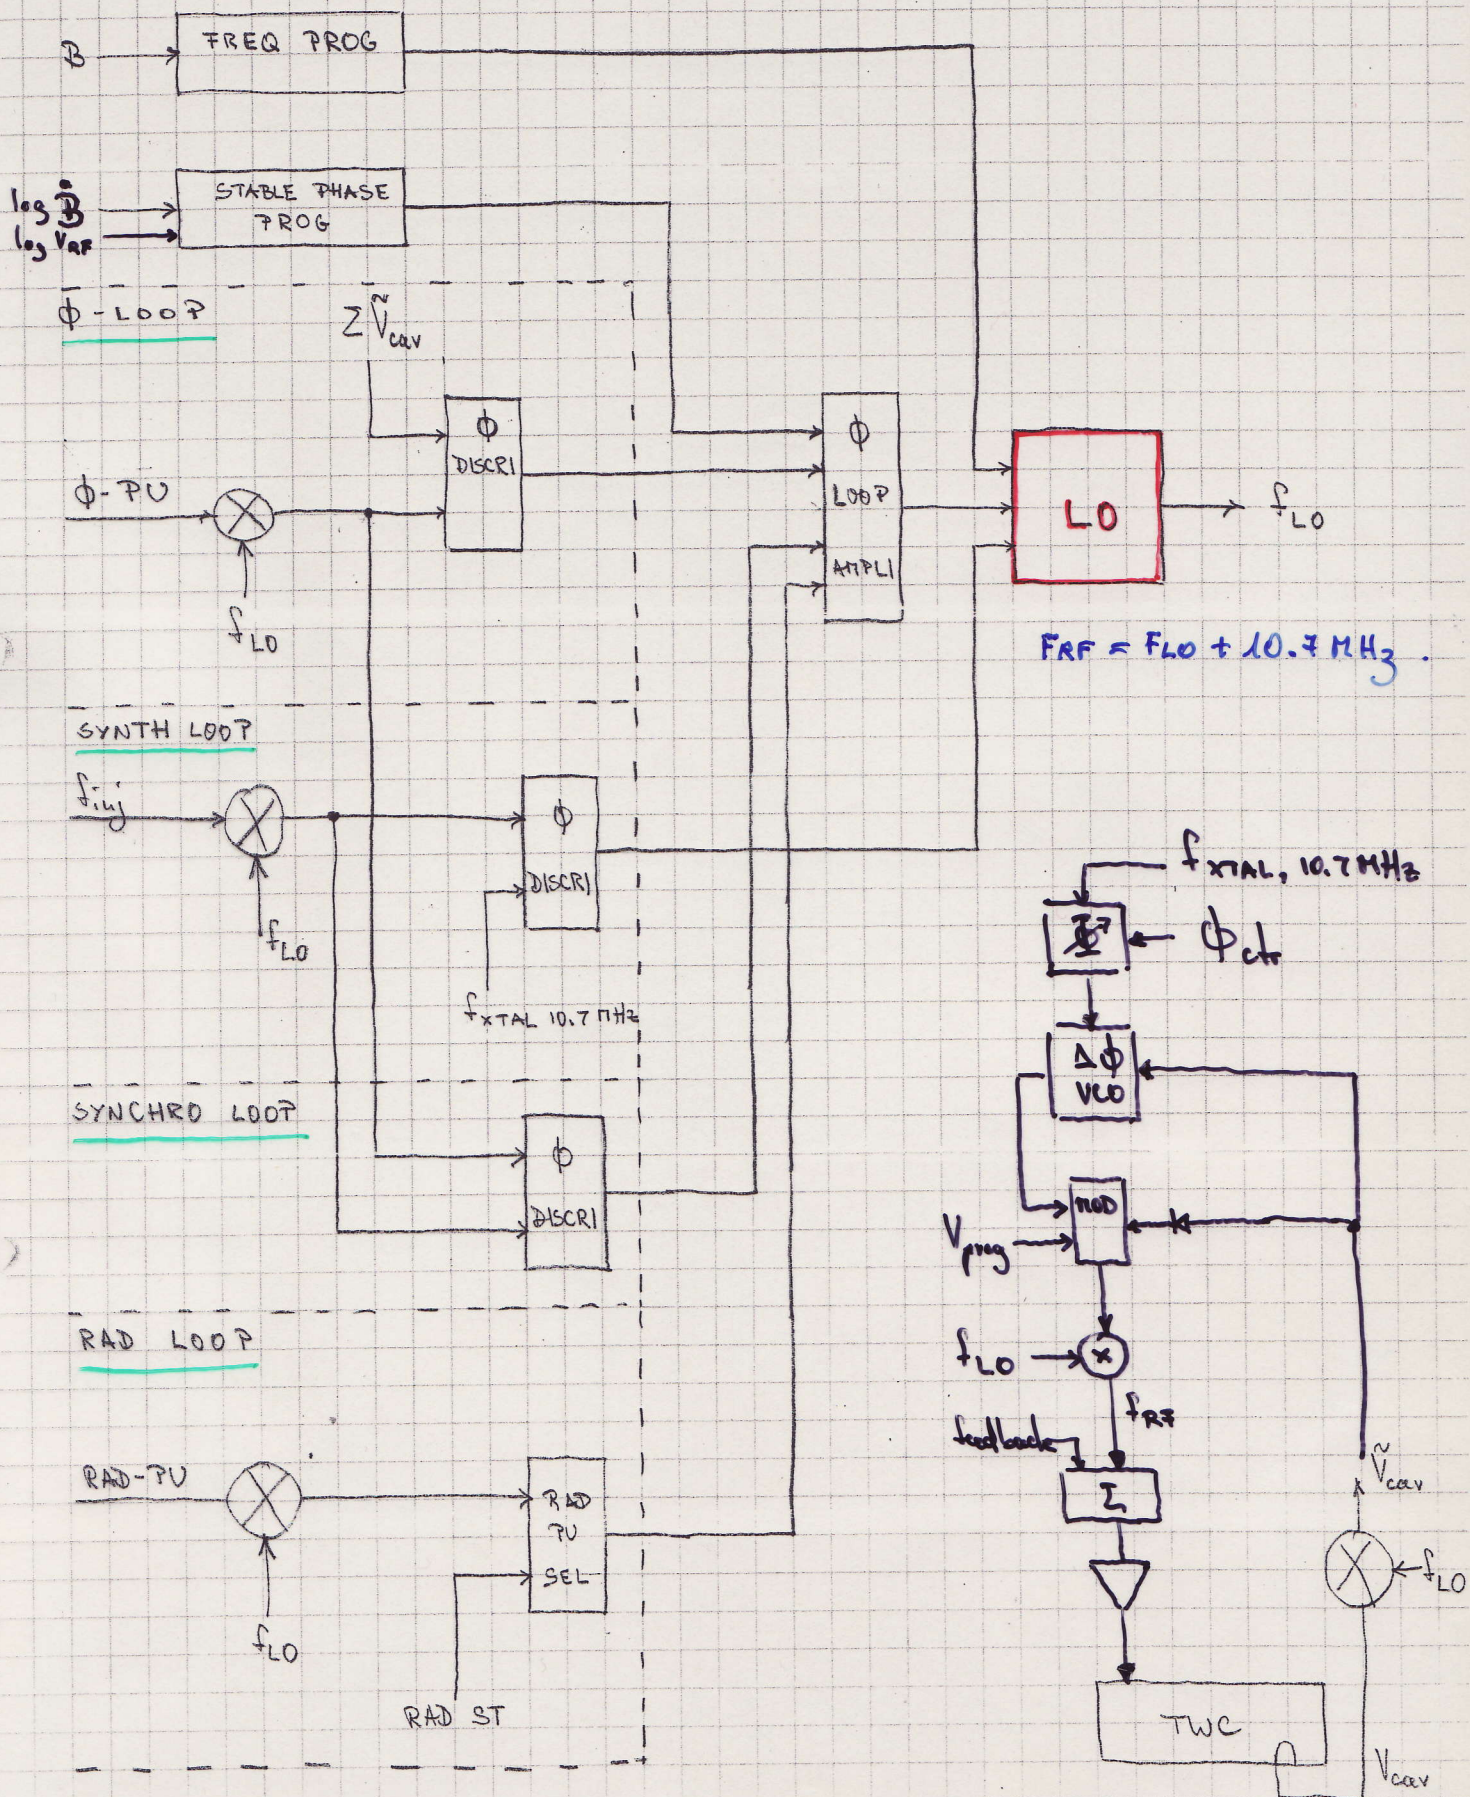 B
FREQ PROG
log Ḃ
log VRF
STABLE PHASE
PROG
ϕ-LOOP
Σ Ṽcav
ϕ
DISCRI
ϕ-PU
fLO
ϕ
LOOP
AMPLI
LO
fLO
FRF = FLO + 10.7 MHz.
SYNTH LOOP
finj
fLO
ϕ
DISCRI
fXTAL 10.7 MHz
SYNCHRO LOOP
ϕ
DISCRI
RAD LOOP
RAD-PU
fLO
RAD
PU
SEL
RAD ST
fXTAL, 10.7 MHz
Φ
ϕctr
Δϕ
VCO
MOD
Vprog
fLO
x
fRF
feedback
Σ
TWC
Ṽcav
fLO
Vcav